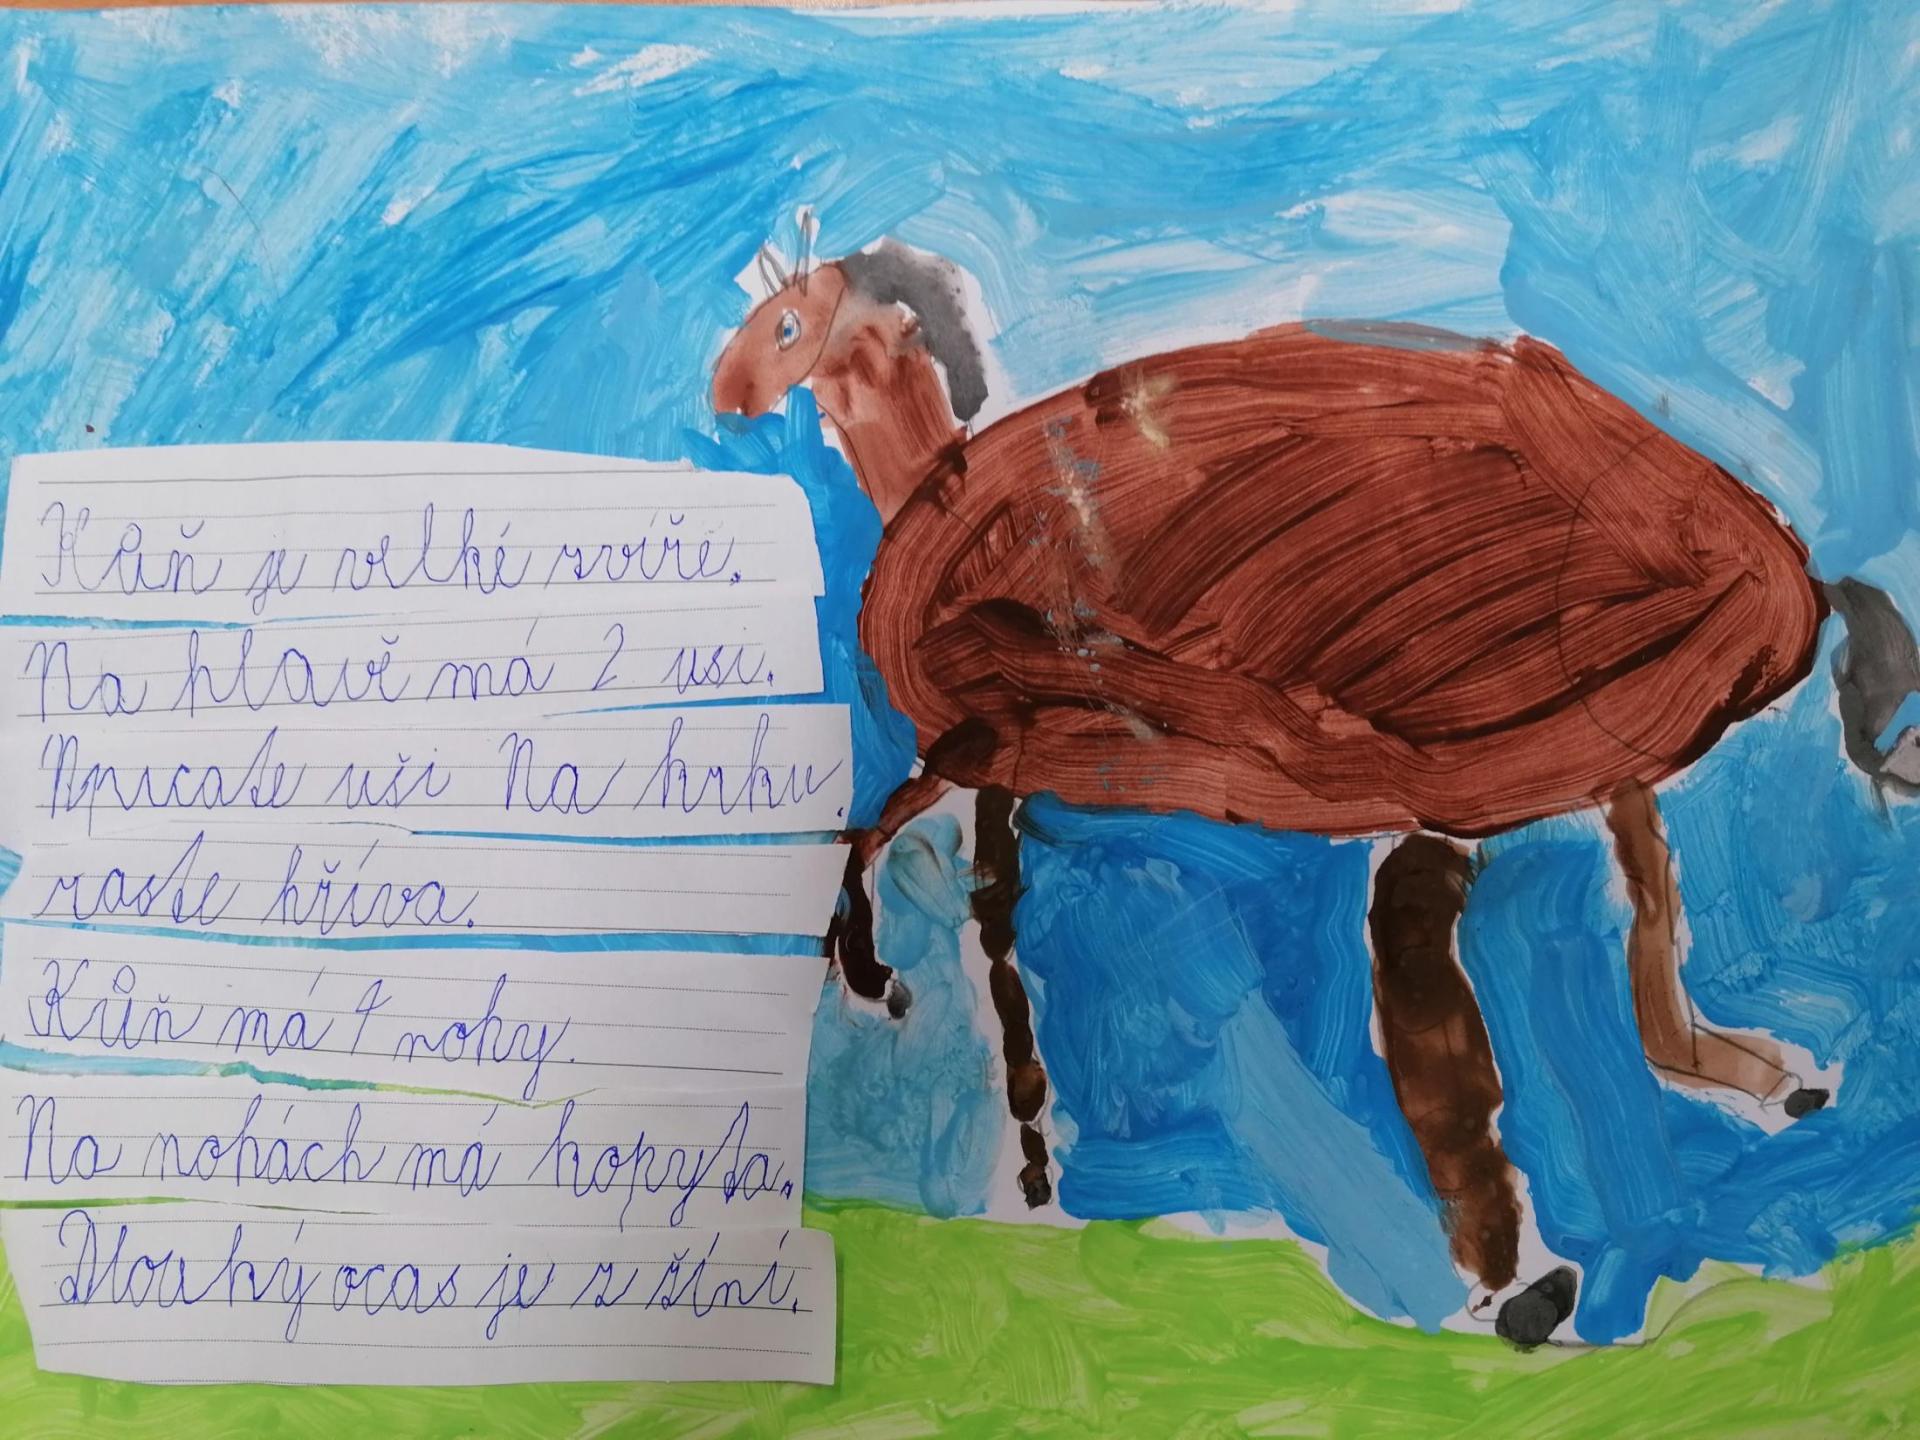 Kůň je velké zvíře.
Na hlavě má 2 usi.
uši Na krku.
roste hříva.
Kůň má 4 nohy.
Na nohách má kopyta.
Dlouhý ocas je z žíní.